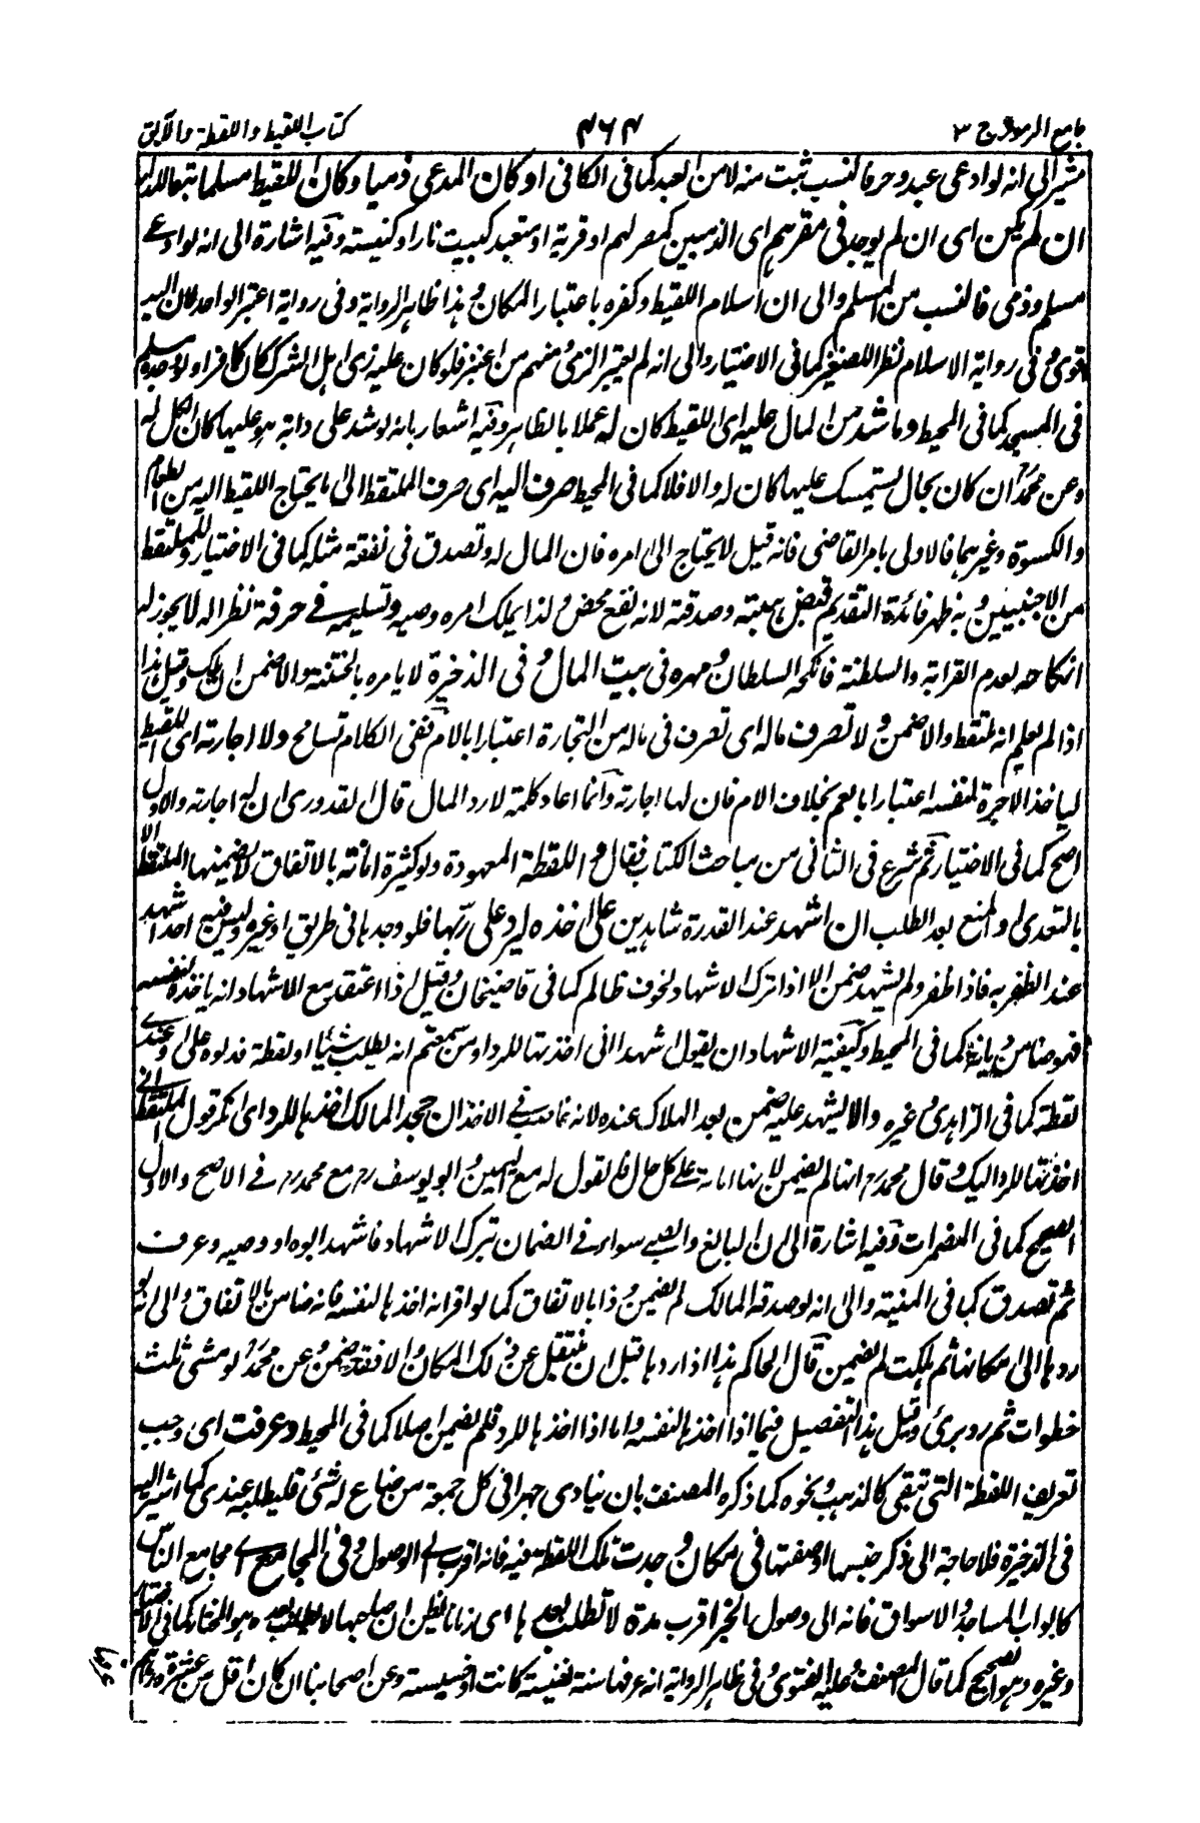 جامع الرموز ج ۳
۴۶۴
كتاب اللقيط واللقطة والآبق
مشير الى انه لو ادعى عبد وحر فالنسب ثبت منه لا من العبد كما فى الكافى او كان المدعى ذميا وكان اللقيط مسلما تبعا للدار
ان لم يكن اى ان لم يوجد فى مقرهم اى الذميين كمصر لهم او قرية او متعبد كبيت نار او كنيسة وفيه اشارة الى انه لو ادعى
مسلم وذمى فالنسب من المسلم والى ان اسلام اللقيط وكفره باعتبار المكان وهذا ظاهر الرواية وفى رواية اعتبر الواجد لان اليد
اقوى وفى رواية الاسلام نظرا للصغير كما فى الاختيار والى انه لم يعتبر الزى ومنهم من اعتبر فلو كان عليه زى اهل الشرك كان كافرا ولو وجده مسلم
فى المسجد كما فى المحيط وما شد من المال عليه اى اللقيط كان له عملا بالظاهر وفيه اشعار بانه لو شد على دابة هو عليها كان الكل له
وعن محمد ان كان بحال يستمسك عليها كان له والا فلا كما فى المحيط صرف اليه اى صرف الملتقط الى ما يحتاج اللقيط اليه من الطعام
والكسوة وغيرهما فالاولى بامر القاضى فانه قيل لا يحتاج الى امره فان المال له وتصدق فى نفقة مثله كما فى الاختيار وللملتقط
من الاجنبيين وبه ظهر فائدة التقديم قبض هبته وصدقته لانه نفع محض ولذا يملك امره وصيه وتسليمه فى حرفة نظرا له لا يجوز له
انكاحه لعدم القرابة والسلطنة فانكحه السلطان ومهره فى بيت المال وفى الذخيرة لا يامره بالختنة والا ضمن ان هلك وقيل هذا
اذا لم يعلم انه ملتقط والا ضمن ولا تصرف ماله اى تصرف فى ماله من التجارة اعتبارا بالام ففى الكلام تسامح ولا اجارته اى اللقيط
لياخذ الاجرة لنفسه اعتبارا بالعم بخلاف الام فان لها اجارته وانما اعاد كلمة لا رد المال قال القدورى ان له اجارته والاول
اصح كما فى الاختيار ثم شرع فى الثانى من مباحث الكتاب فقال واللقطة المعهودة ولو كثيرة امانة بالاتفاق لا يضمنها الملتقط الا
بالتعدى او المنع بعد الطلب ان اشهد عند القدرة شاهدين على اخذه ليرد على ربها فلو وجدها فى طريق او غيره وليس فيه احد اشهد
عند الظفر به فاذا ظفر ولم يشهد ضمن الا اذا ترك الاشهاد لخوف ظالم كما فى قاضيخان وقيل اذا اعتقد مع الاشهاد انه ياخذه لنفسه
فهو ضامن ديانة كما فى المحيط وكيفية الاشهاد ان يقول اشهد انى اخذتها للرد او من سمعتم انه يطلب شيئا او لقطة فدلوه على وعندى
لقطة كما فى الزاهدى وغيره والا يشهد عليه ضمن بعد الهلاك عنده لانه غاصب فى الاخذ ان جحد المالك اخذها للرد اى انكر قول الملتقط انى
اخذتها للرد اليك وقال محمد رح انها لم يضمن لانها امانة على كل حال فالقول له مع اليمين وابو يوسف رح مع محمد رح فى الاصح والاول
الصحيح كما فى المضمرات وفيه اشارة الى ان البالغ والصبى سواء فى الضمان بترك الاشهاد فاشهد ابوه او وصيه وعرف
ثم تصدق كما فى المنية والى انه لو صدقه المالك لم يضمن وذا بالاتفاق كما لو اقر انه اخذها لنفسه فانه ضامن بالاتفاق والى انه لو
ردها الى مكانها ثم هلكت لم يضمن قال الحاكم هذا اذا ردها قبل ان ينتقل عن ذلك المكان والا فقد ضمن وعن محمد لو مشى ثلث
خطوات ثم رد برئ وقيل هذا التفصيل فيما اذا اخذها لنفسه واما اذا اخذها للرد فلم يضمن اصلا كما فى المحيط وعرفت اى وجب
تعريف اللقطة التى تبقى كالذهب ونحوه كما ذكره المصنف بان ينادى جهرا فى كل جمعة من ضاع له شئ فليطلبه عندى كما اشير اليه
فى الذخيرة فلا حاجة الى ذكر جنسها او صفتها فى مكان وجدت تلك اللقطة فيه فانه اقرب الى الوصول وفى المجامع اى مجامع الناس
كابواب المساجد والاسواق فانه الى وصول الخبر اقرب مدة لا تطلب بعدها اى زمانا يظن ان صاحبها لا يطلبها بعده هو المختار كما فى الاختيار
وغيره وهو الصحيح كما قال المصنف وعليه الفتوى وفى ظاهر الرواية انه عرفها سنة نفيسة كانت او خسيسة وعن اصحابنا ان كان اقل من عشرة دراهم
عرفها